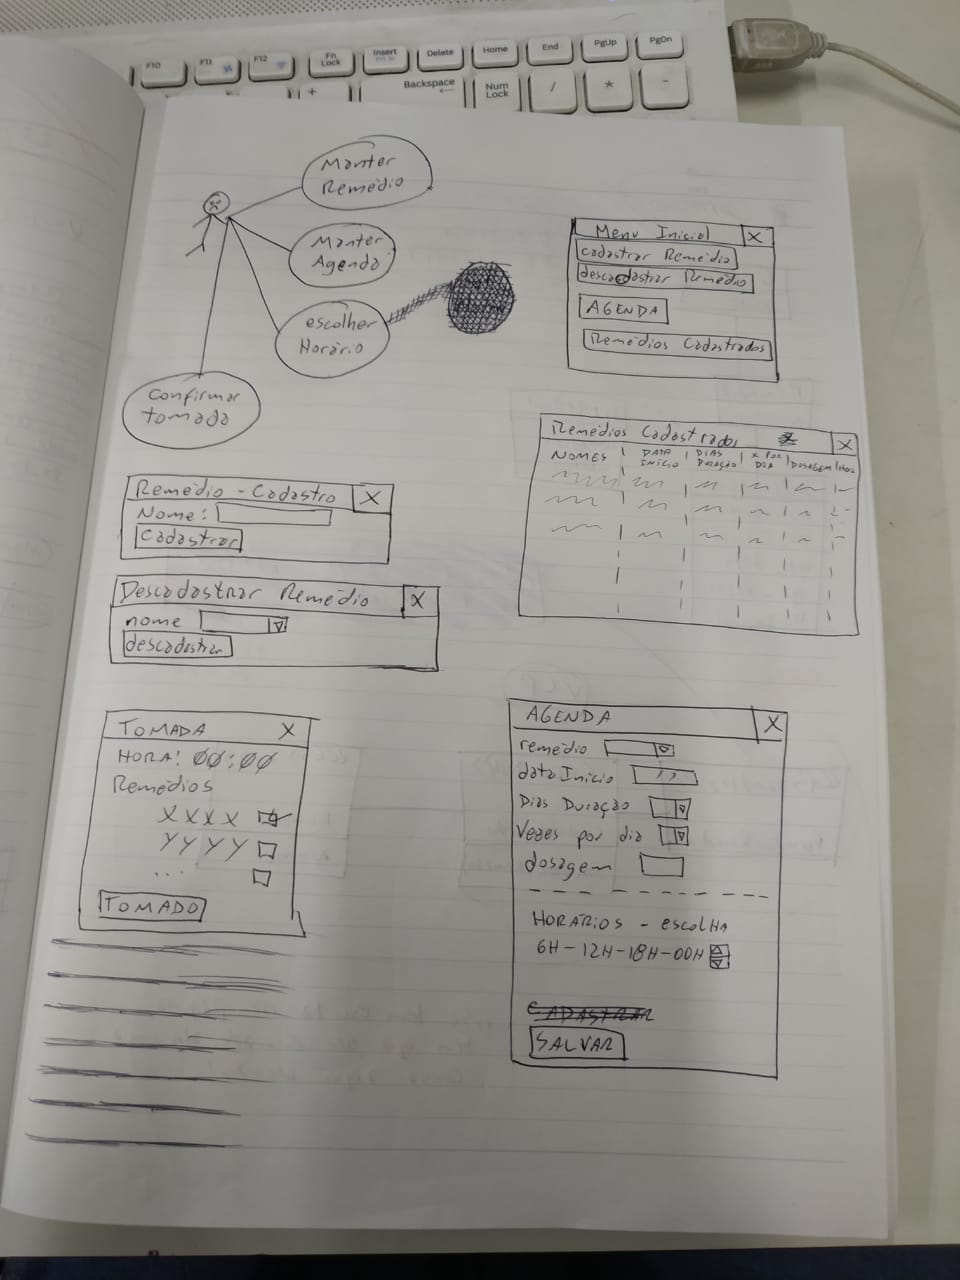 F10
F11
F12
Fn
Lock
Insert
Delete
Home
End
PgUp
PgDn
+
Backspace
Num
Lock
/
*
-
Manter
Remédio
Manter
Agenda
escolher
Horário
Confirmar
tomada
Menu Inicial X
cadastrar Remédio
descadastrar Remédio
AGENDA
Remédios Cadastrados
Remédios Cadastrados X
NOMES | DATA INÍCIO | DIAS DURAÇÃO | X POR DIA | DOSAGEM | HORA
Remédio - Cadastro X
Nome:
Cadastrar
Descadastrar Remédio X
nome
descadastrar
TOMADA X
HORA: 00:00
Remédios
XXXX
YYYY
...
TOMADO
AGENDA X
remédio
data Início / /
Dias Duração
Vezes por dia
dosagem
HORÁRIOS - escolHA
6H-12H-18H-00H
CADASTRAR
SALVAR